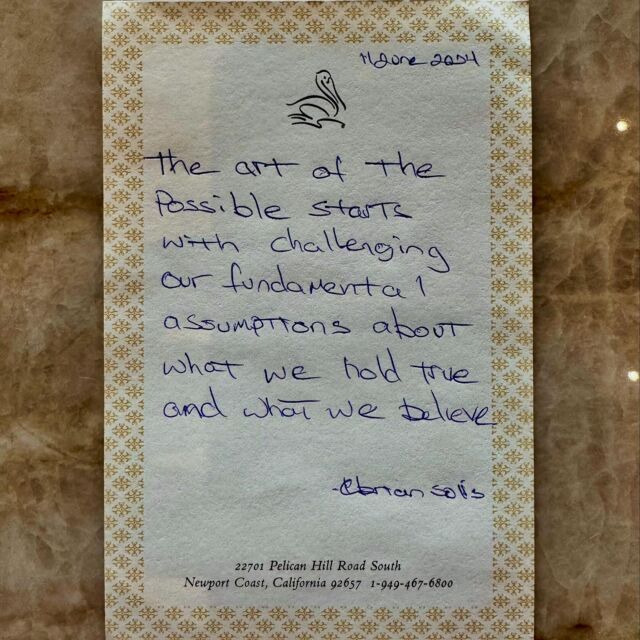 11 June 2024
The art of the
Possible starts
with challenging
our fundamental
assumptions about
what we hold true
and what we believe
-@briansolis
22701 Pelican Hill Road South
Newport Coast, California 92657 1-949-467-6800